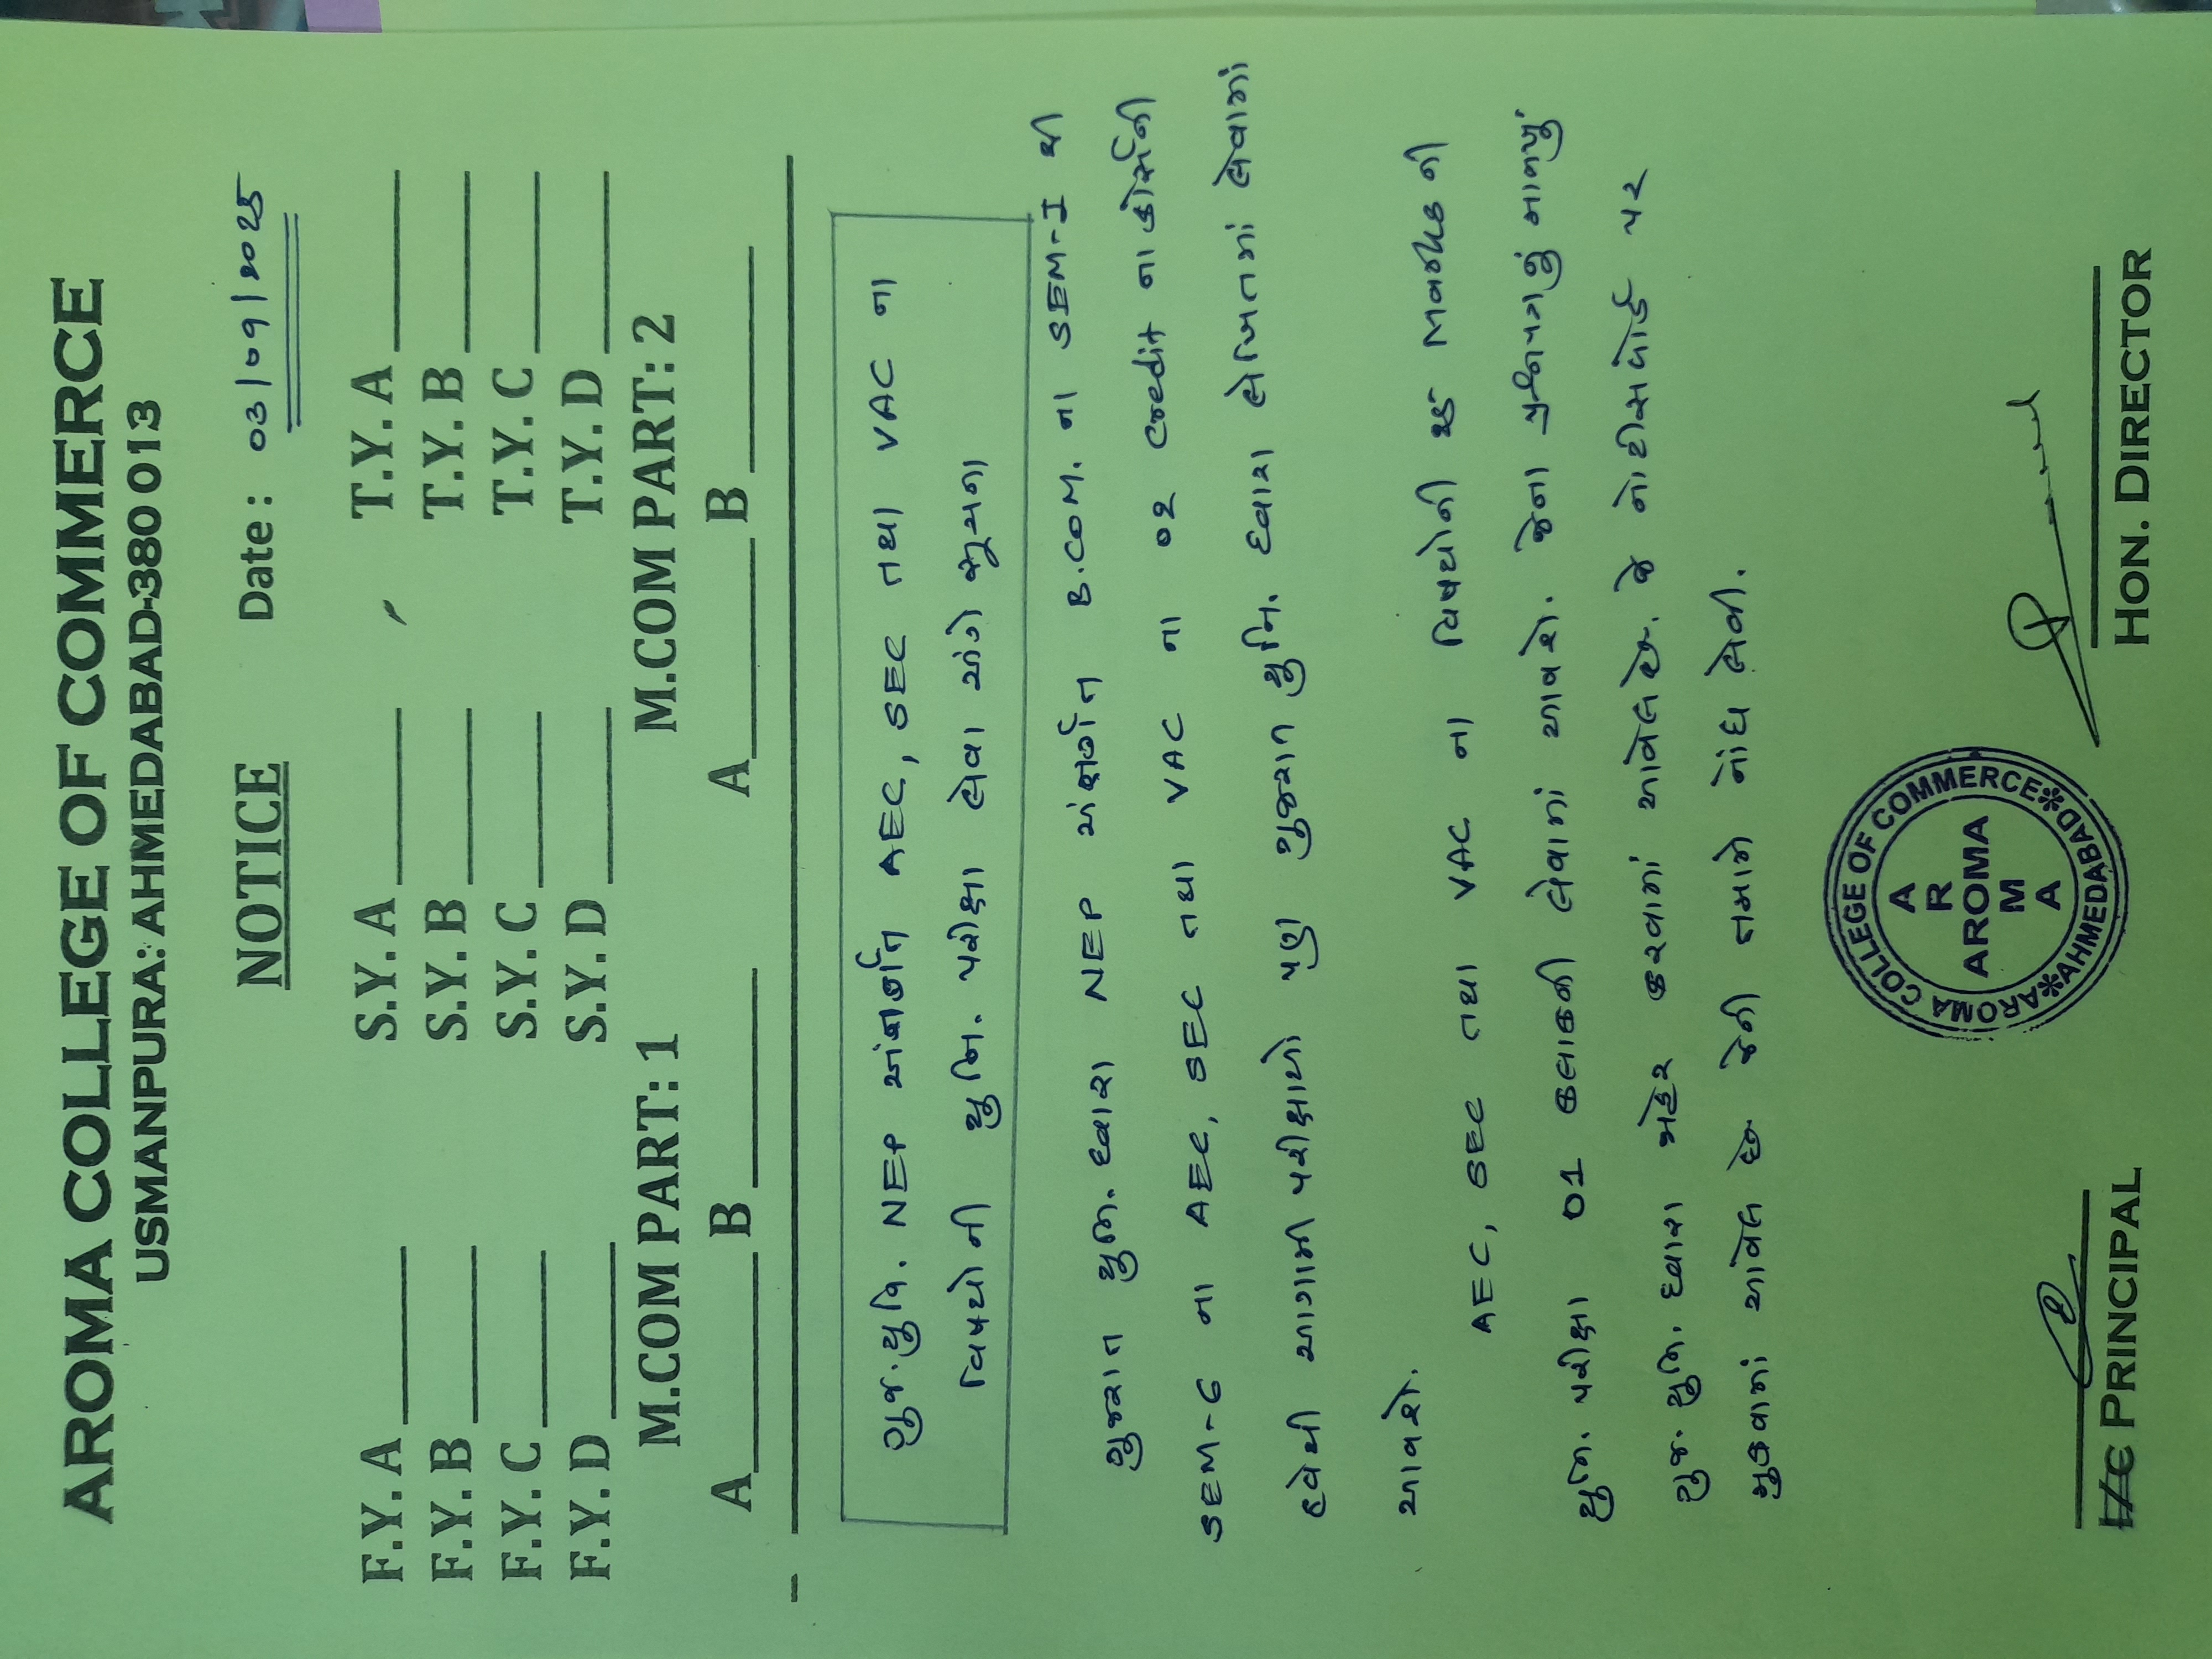 AROMA COLLEGE OF COMMERCE
USMANPURA: AHMEDABAD-380 013
NOTICE Date: 03/09/2025
F.Y. A S.Y. A T.Y. A
F.Y. B S.Y. B T.Y. B
F.Y. C S.Y. C T.Y. C
F.Y. D S.Y. D T.Y. D
M.COM PART: 1 M.COM PART: 2
A B A B
ગુજ. યુનિ. NEP અંતર્ગત AEC, SEC તથા VAC ના
વિષયોની યુનિ. પરીક્ષા લેવા અંગે સૂચના
ગુજરાત યુનિ. દ્વારા NEP અંતર્ગત B.COM. ના SEM-I થી
SEM-6 ના AEC, SEC તથા VAC ના 02 Credit ના કોર્સની
હવેથી આગામી પરીક્ષાઓ પણ ગુજરાત યુનિ. દ્વારા લેખિતમાં લેવામાં
આવશે.
AEC, SEC તથા VAC ના વિષયોની Marks ની
યુનિ. પરીક્ષા 01 કલાકની લેવામાં આવશે. જેના પ્રશ્નપત્રનું માળખું
ગુજ. યુનિ. દ્વારા જાહેર કરવામાં આવેલ છે. જે નોટીસબોર્ડ પર
મુકવામાં આવેલ છે જેની તમામે નોંધ લેવી.
AROMA COLLEGE OF COMMERCE * AHMEDABAD *
A
R
AROMA
M
A
I/C PRINCIPAL HON. DIRECTOR